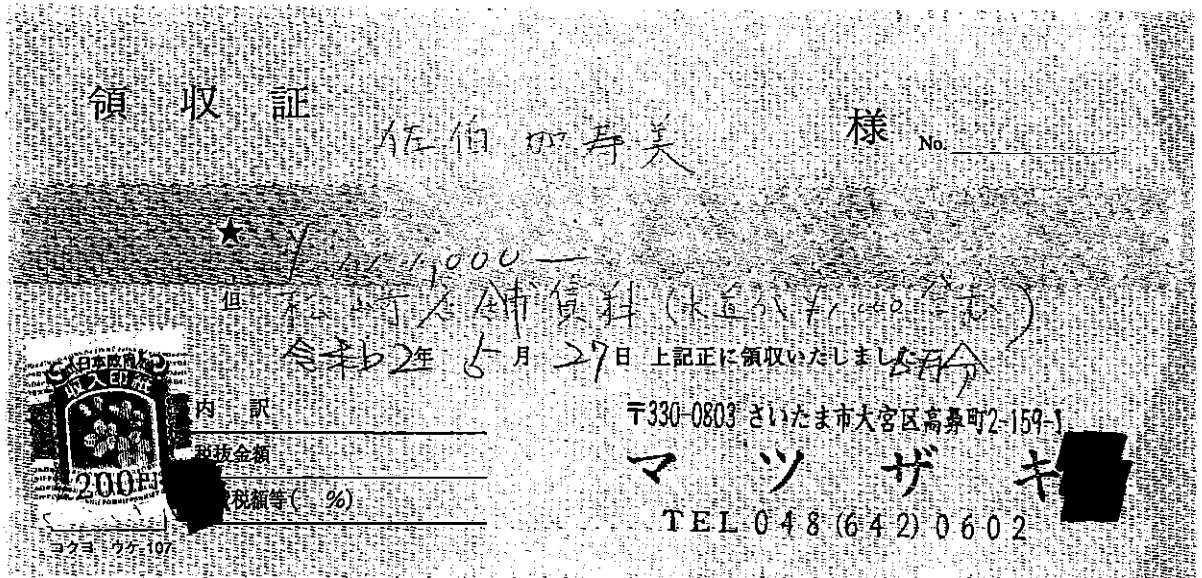 領収証
佐伯 加寿美 様 No.
★ ¥ ,000 —
但 松崎店舗賃料 (水道代¥1,000含む)
令和2年 5月 27日 上記正に領収いたしました 6月分
内訳
税抜金額
税額等( %)
日本政府
収入印紙
200円
コクヨ ウケ-107
〒330-0803 さいたま市大宮区高鼻町2-159-1
マツザキ
TEL 048(642)0602